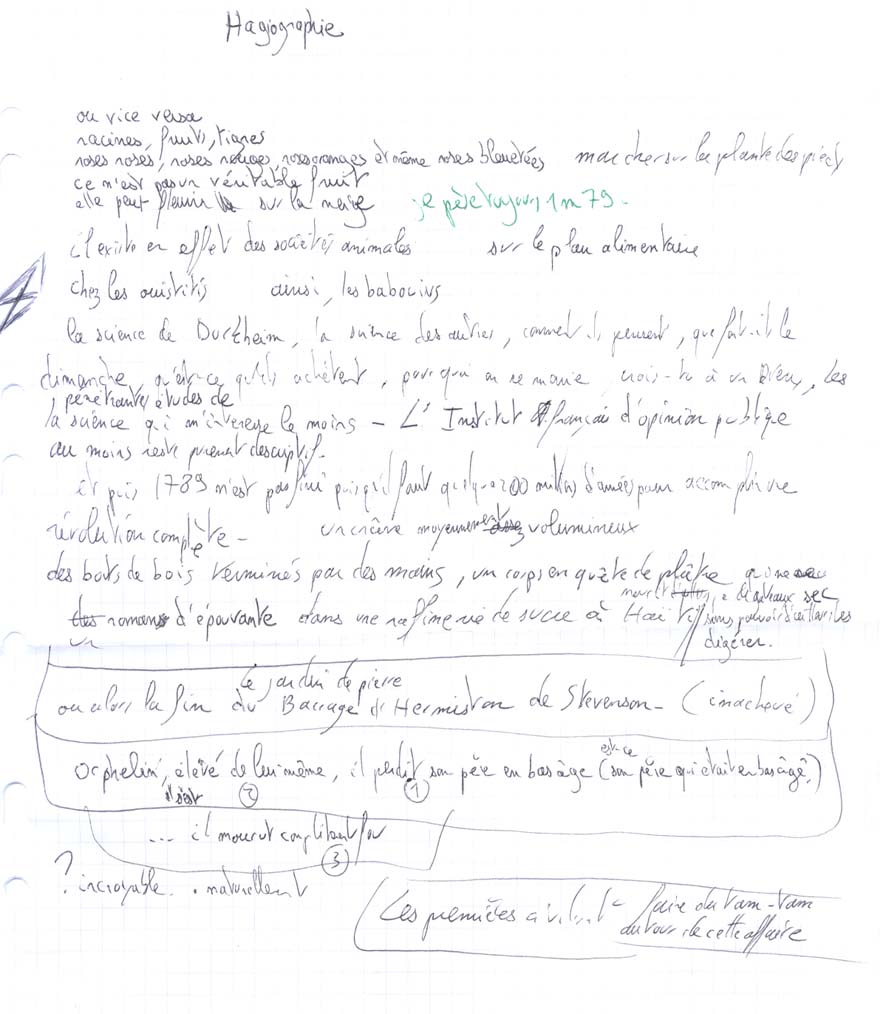 Hagiographie
ou vice versa
racines, fruits, tignes
roses roses, roses rouges, roses oranges et même roses bleutées marcher sur la plante des pieds
ce n'est pas un véritable fruit
elle peut fleurir sur la neige je pèse toujours 1m79.
il existe en effet des sociétés animales sur le plan alimentaire
chez les ouistitis ainsi, les babouins
la science de Durkheim, la science des autres, comment ils pensent, que fait-il le
dimanche, qu'est-ce qu'ils achètent, pourquoi on se marie, crois-tu à un Dieu, les
pénétrantes études de
la science qui m'intéresse le moins - L'Institut français d'opinion publique
au moins reste purement descriptif.
et puis 1789 n'est pas fini puisqu'il faut quelque 200 millions d'années pour accomplir une
révolution complète - un crâne moyennement assez volumineux
des bouts de bois terminés par des mains, un corps en quête de plâtre
des romans d'épouvante dans une raffinerie de sucre à Haïti
un
sans pouvoir
digérer.
le jardin de pierre
ou alors la fin du Barrage d'Hermiston de Stevenson - (inachevé)
est-ce
Orphelin, élevé de lui même, il perdit son père en bas âge (son père qui était en bas âge.)
il s'est 2 1
... il mourut complètement fou
3
? incroyable. . naturellement
Les premières faire du tam-tam
autour de cette affaire